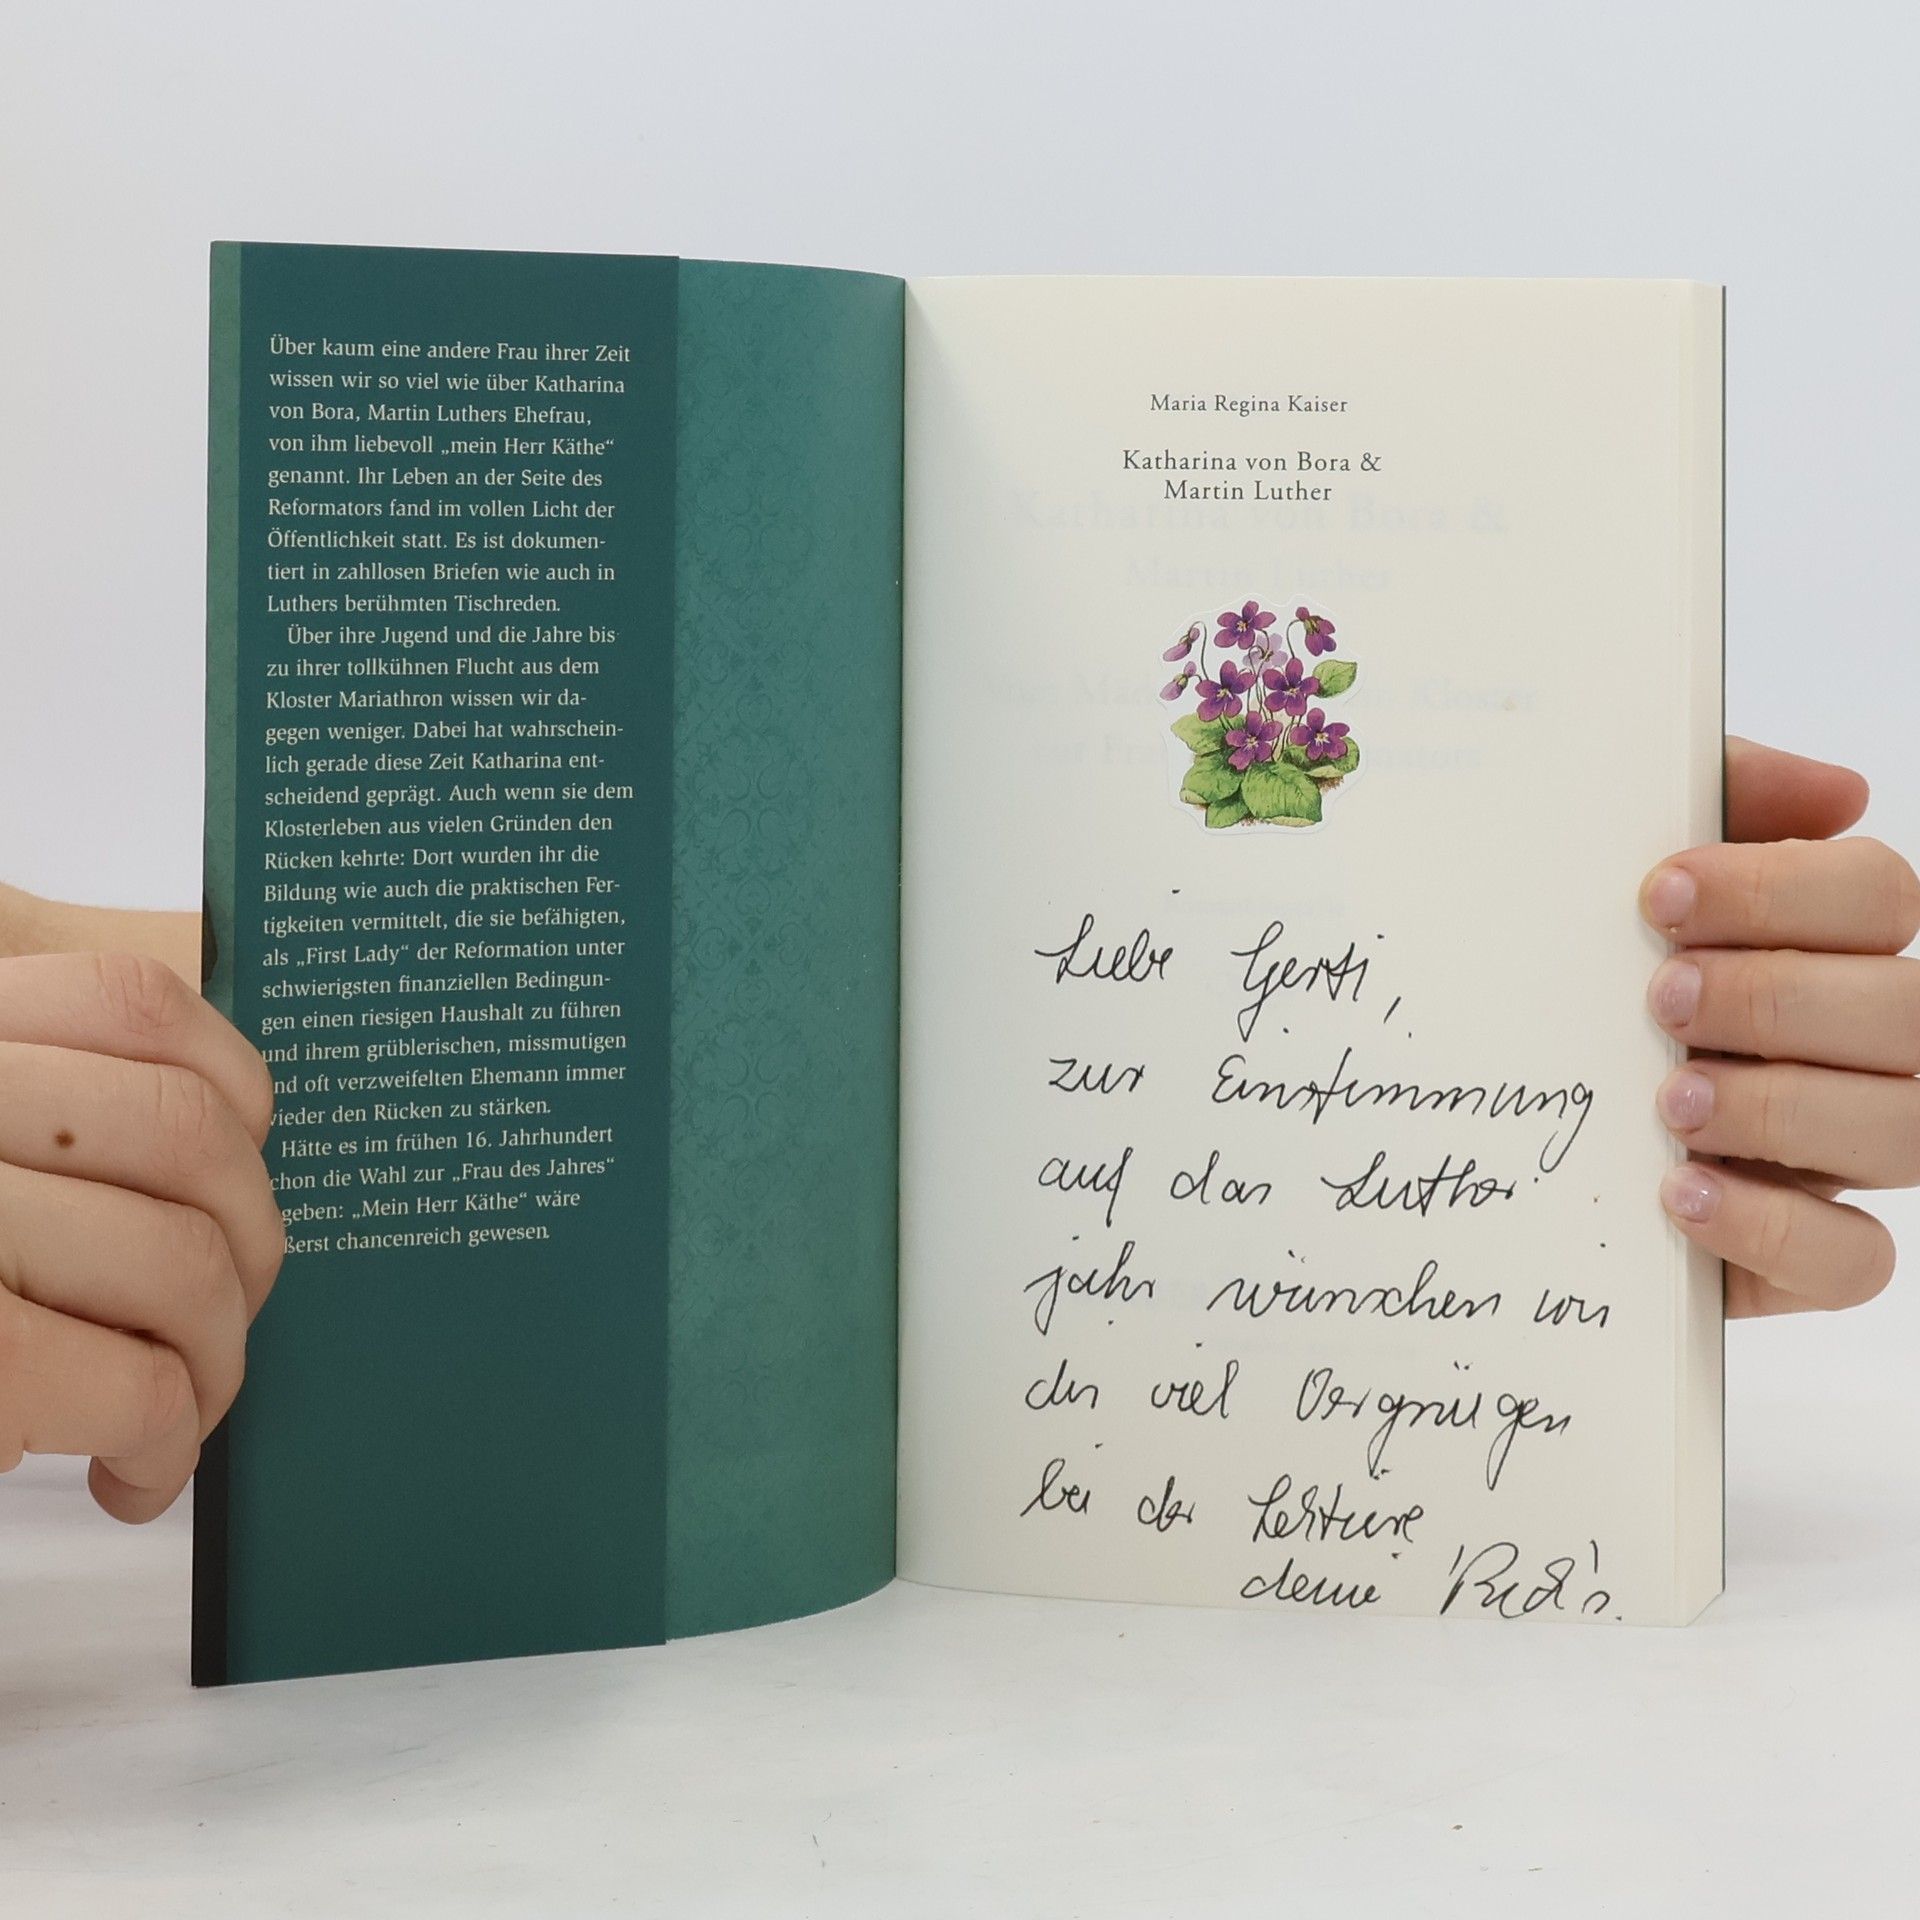 Über kaum eine andere Frau ihrer Zeit
wissen wir so viel wie über Katharina
von Bora, Martin Luthers Ehefrau,
von ihm liebevoll „mein Herr Käthe“
genannt. Ihr Leben an der Seite des
Reformators fand im vollen Licht der
Öffentlichkeit statt. Es ist dokumen-
tiert in zahllosen Briefen wie auch in
Luthers berühmten Tischreden.
Über ihre Jugend und die Jahre bis
zu ihrer tollkühnen Flucht aus dem
Kloster Mariathron wissen wir da-
gegen weniger. Dabei hat wahrschein-
lich gerade diese Zeit Katharina ent-
scheidend geprägt. Auch wenn sie dem
Klosterleben aus vielen Gründen den
Rücken kehrte: Dort wurden ihr die
Bildung wie auch die praktischen Fer-
tigkeiten vermittelt, die sie befähigten,
als „First Lady“ der Reformation unter
schwierigsten finanziellen Bedingun-
gen einen riesigen Haushalt zu führen
und ihrem grüblerischen, missmutigen
nd oft verzweifelten Ehemann immer
ieder den Rücken zu stärken.
Hätte es im frühen 16. Jahrhundert
chon die Wahl zur „Frau des Jahres“
geben: „Mein Herr Käthe“ wäre
ßerst chancenreich gewesen.
Maria Regina Kaiser
Katharina von Bora &
Martin Luther
Liebe Gerti,
zur Einstimmung
auf das Luther-
jahr wünschen wir
dir viel Vergnügen
bei der Lektüre
deine